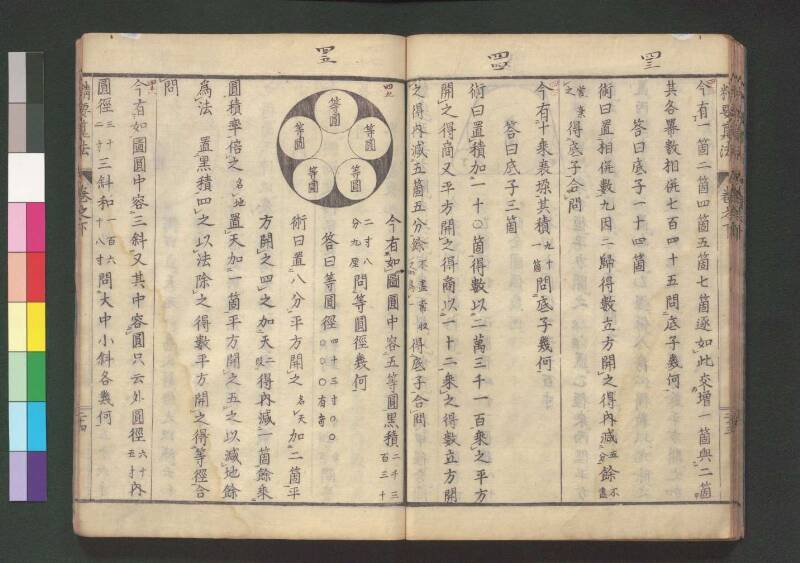 四三
今有一箇二箇四箇五箇七箇逐如此交增一箇與二箇
其各畧數相併七百四十五問底子幾何
答曰底子一十四箇
術曰置相併數九因二歸得數立方開之得內減五分餘不盡
棄之得底子合問
四四
今有十乘衰垜其積九十一箇問底子幾何
答曰底子三箇
術曰置積加一十〇箇得數以二萬三千一百乘之平方
開之得商又平方開之得商以一十二乘之得數立方開
之得內減五箇五分餘不盡棄收之為一得底子合問
四五
等圓
等圓
等圓
等圓
等圓
今有如圖圓中容五等圓黑積二千三百三十
二寸八分九厘問等圓徑幾何
答曰等圓徑四十三寸〇〇〇〇〇有奇
術曰置八分平方開之名天加二箇平
方開之四之加天二段得內減一箇餘乘
圓積率倍之名地置天加一箇平方開之五之以減地餘
為法置黑積四之以法除之得數平方開之得等徑合
問
今有如圖圓中容三斜又其中容圓只云外圓徑六十五寸內
圓徑二十三寸三斜和一百六十八寸問大中小斜各幾何
精要算法
卷之下
二十四